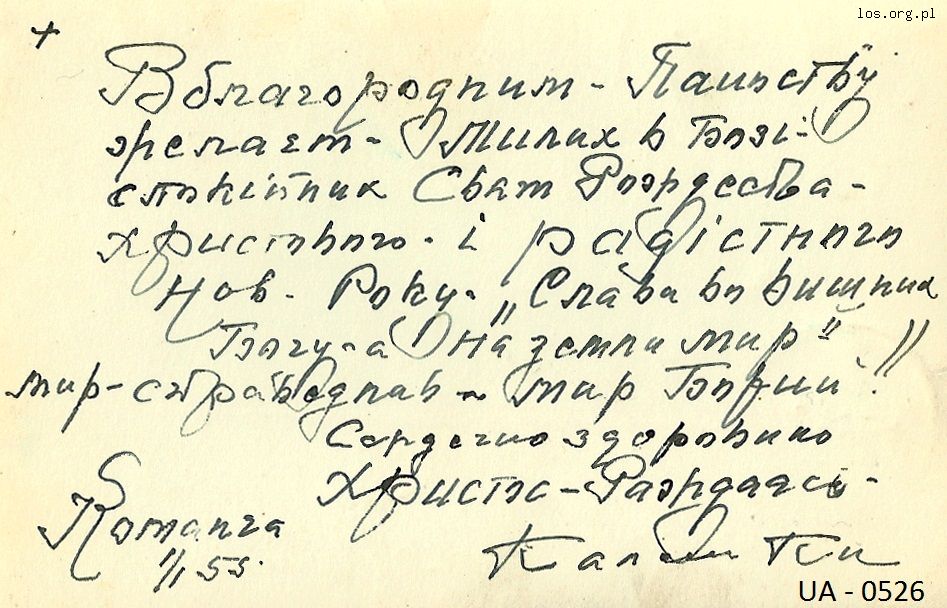 los.org.pl
+
Вблагородним - Паньству
желает - Милих в Бозі -
спокійних Сват Рождества -
Христового - і радістного
Нов. Року - „Слава во вишних
Богу - а на земли мир" !!
мир - справедлив - мир Божий !
Сердечно здоровлю
Христос - Раждаесь -
Команча
1/1 55.
UA - 0526